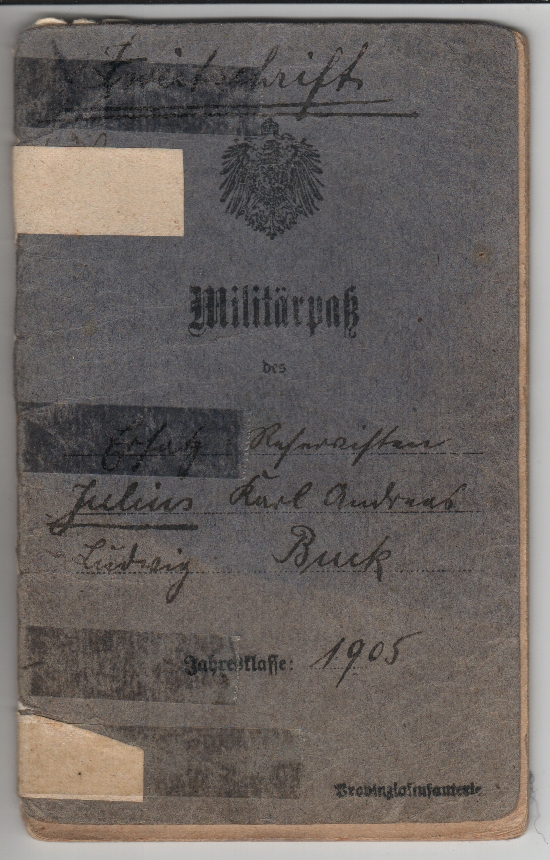 Zweitschrift
Militärpaß
des
Ersatz Reservisten
Julius Karl Andreas
Ludwig Buck
Jahresklasse: 1905
Provinzialinfanterie